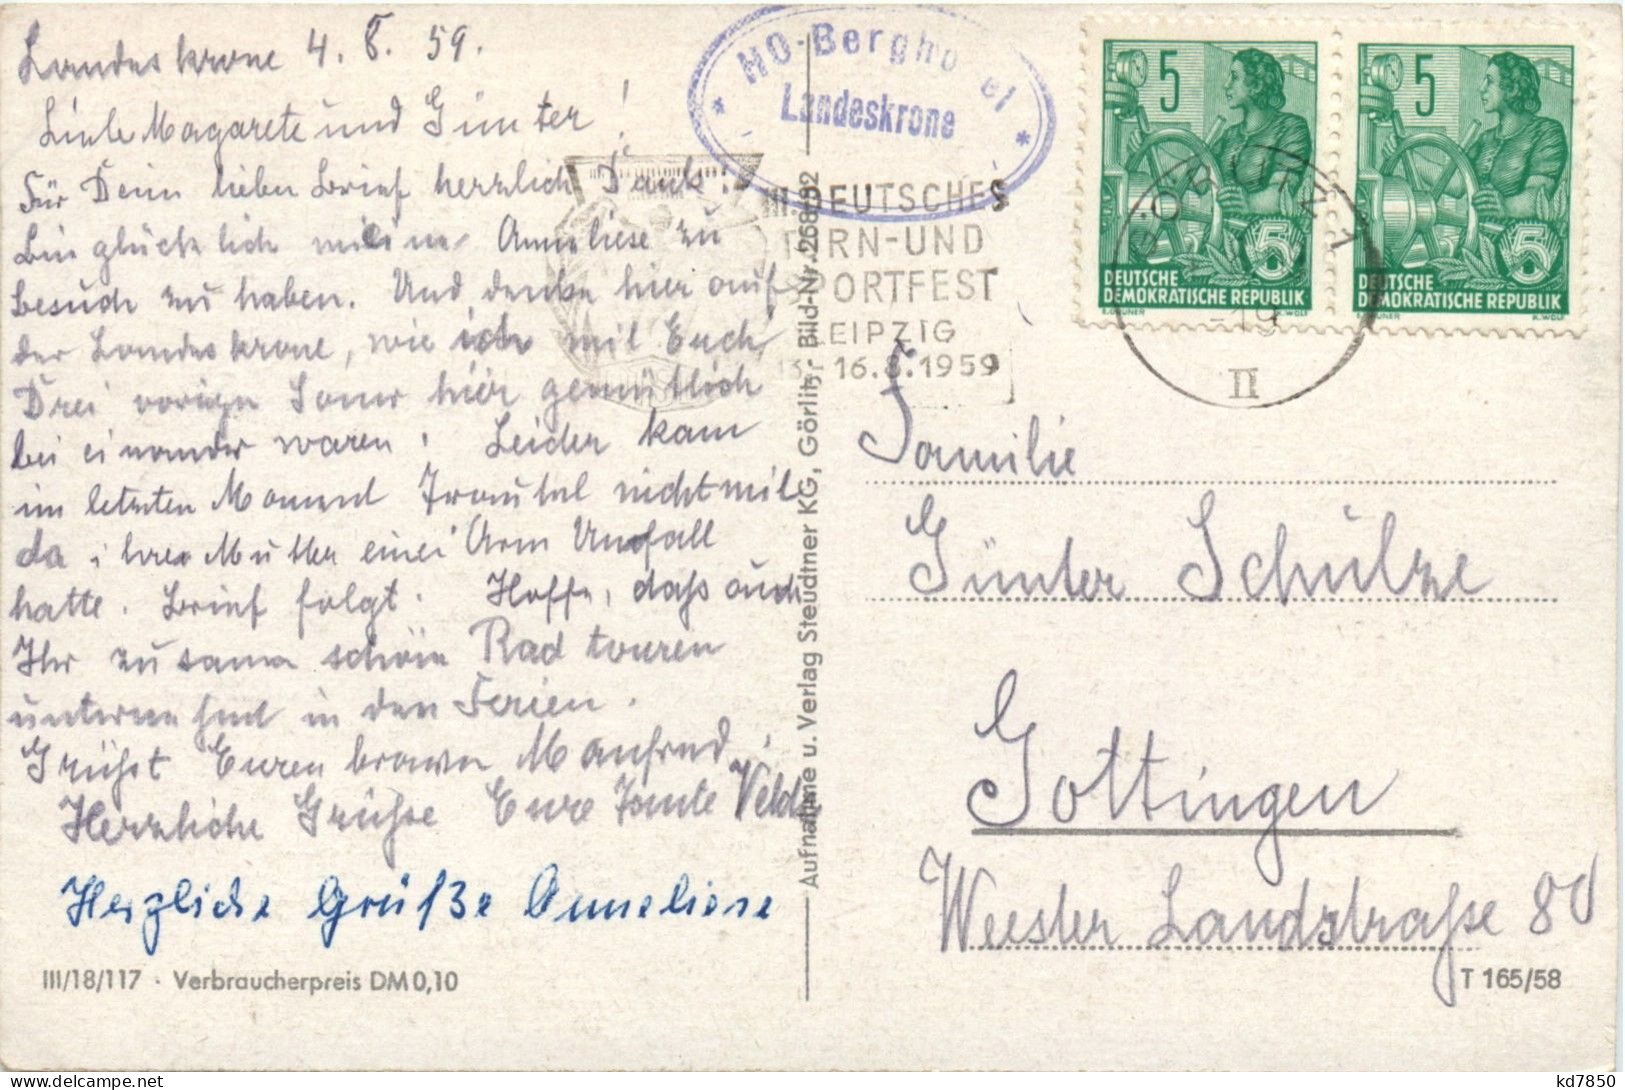 Landeskrone 4. 8. 59.
Liebe Magarete und Günter!
Für Dein lieben Brief herzlich Dank.
Bin glücklich meine Anneliese zu
besuch zu haben. Und denke hier auf
der Landeskrone, wie ich mit Euch
Drei vorign Somer hier gemütlich
bei einander waren. Leider kam
im letzten Moment Trautel nicht mit
da ihre Mutter einen Arm Unfall
hatte. Brief folgt. Hoffe, daß auch
Ihr zusama schöne Rad touren
unternehmt in den Ferien.
Grüßt Euren braven Manfred.
Herzliche Grüße Eure Tante
Herzliche Grüße Anneliese
III/18/117 · Verbraucherpreis DM 0,10
HO-Berghotel
Landeskrone
III. DEUTSCHES
TURN-UND
SPORTFEST
LEIPZIG
16.8.1959
Aufnahme u. Verlag Steudtner KG, Görlitz, Bild-Nr.
5
5
DEUTSCHE
DEMOKRATISCHE REPUBLIK
E. GRUNER K. WOLF
5
5
DEUTSCHE
DEMOKRATISCHE REPUBLIK
E. GRUNER K. WOLF
II
Familie
Günter Schulze
Gottingen
Landstraße 80
T 165/58
kd7850